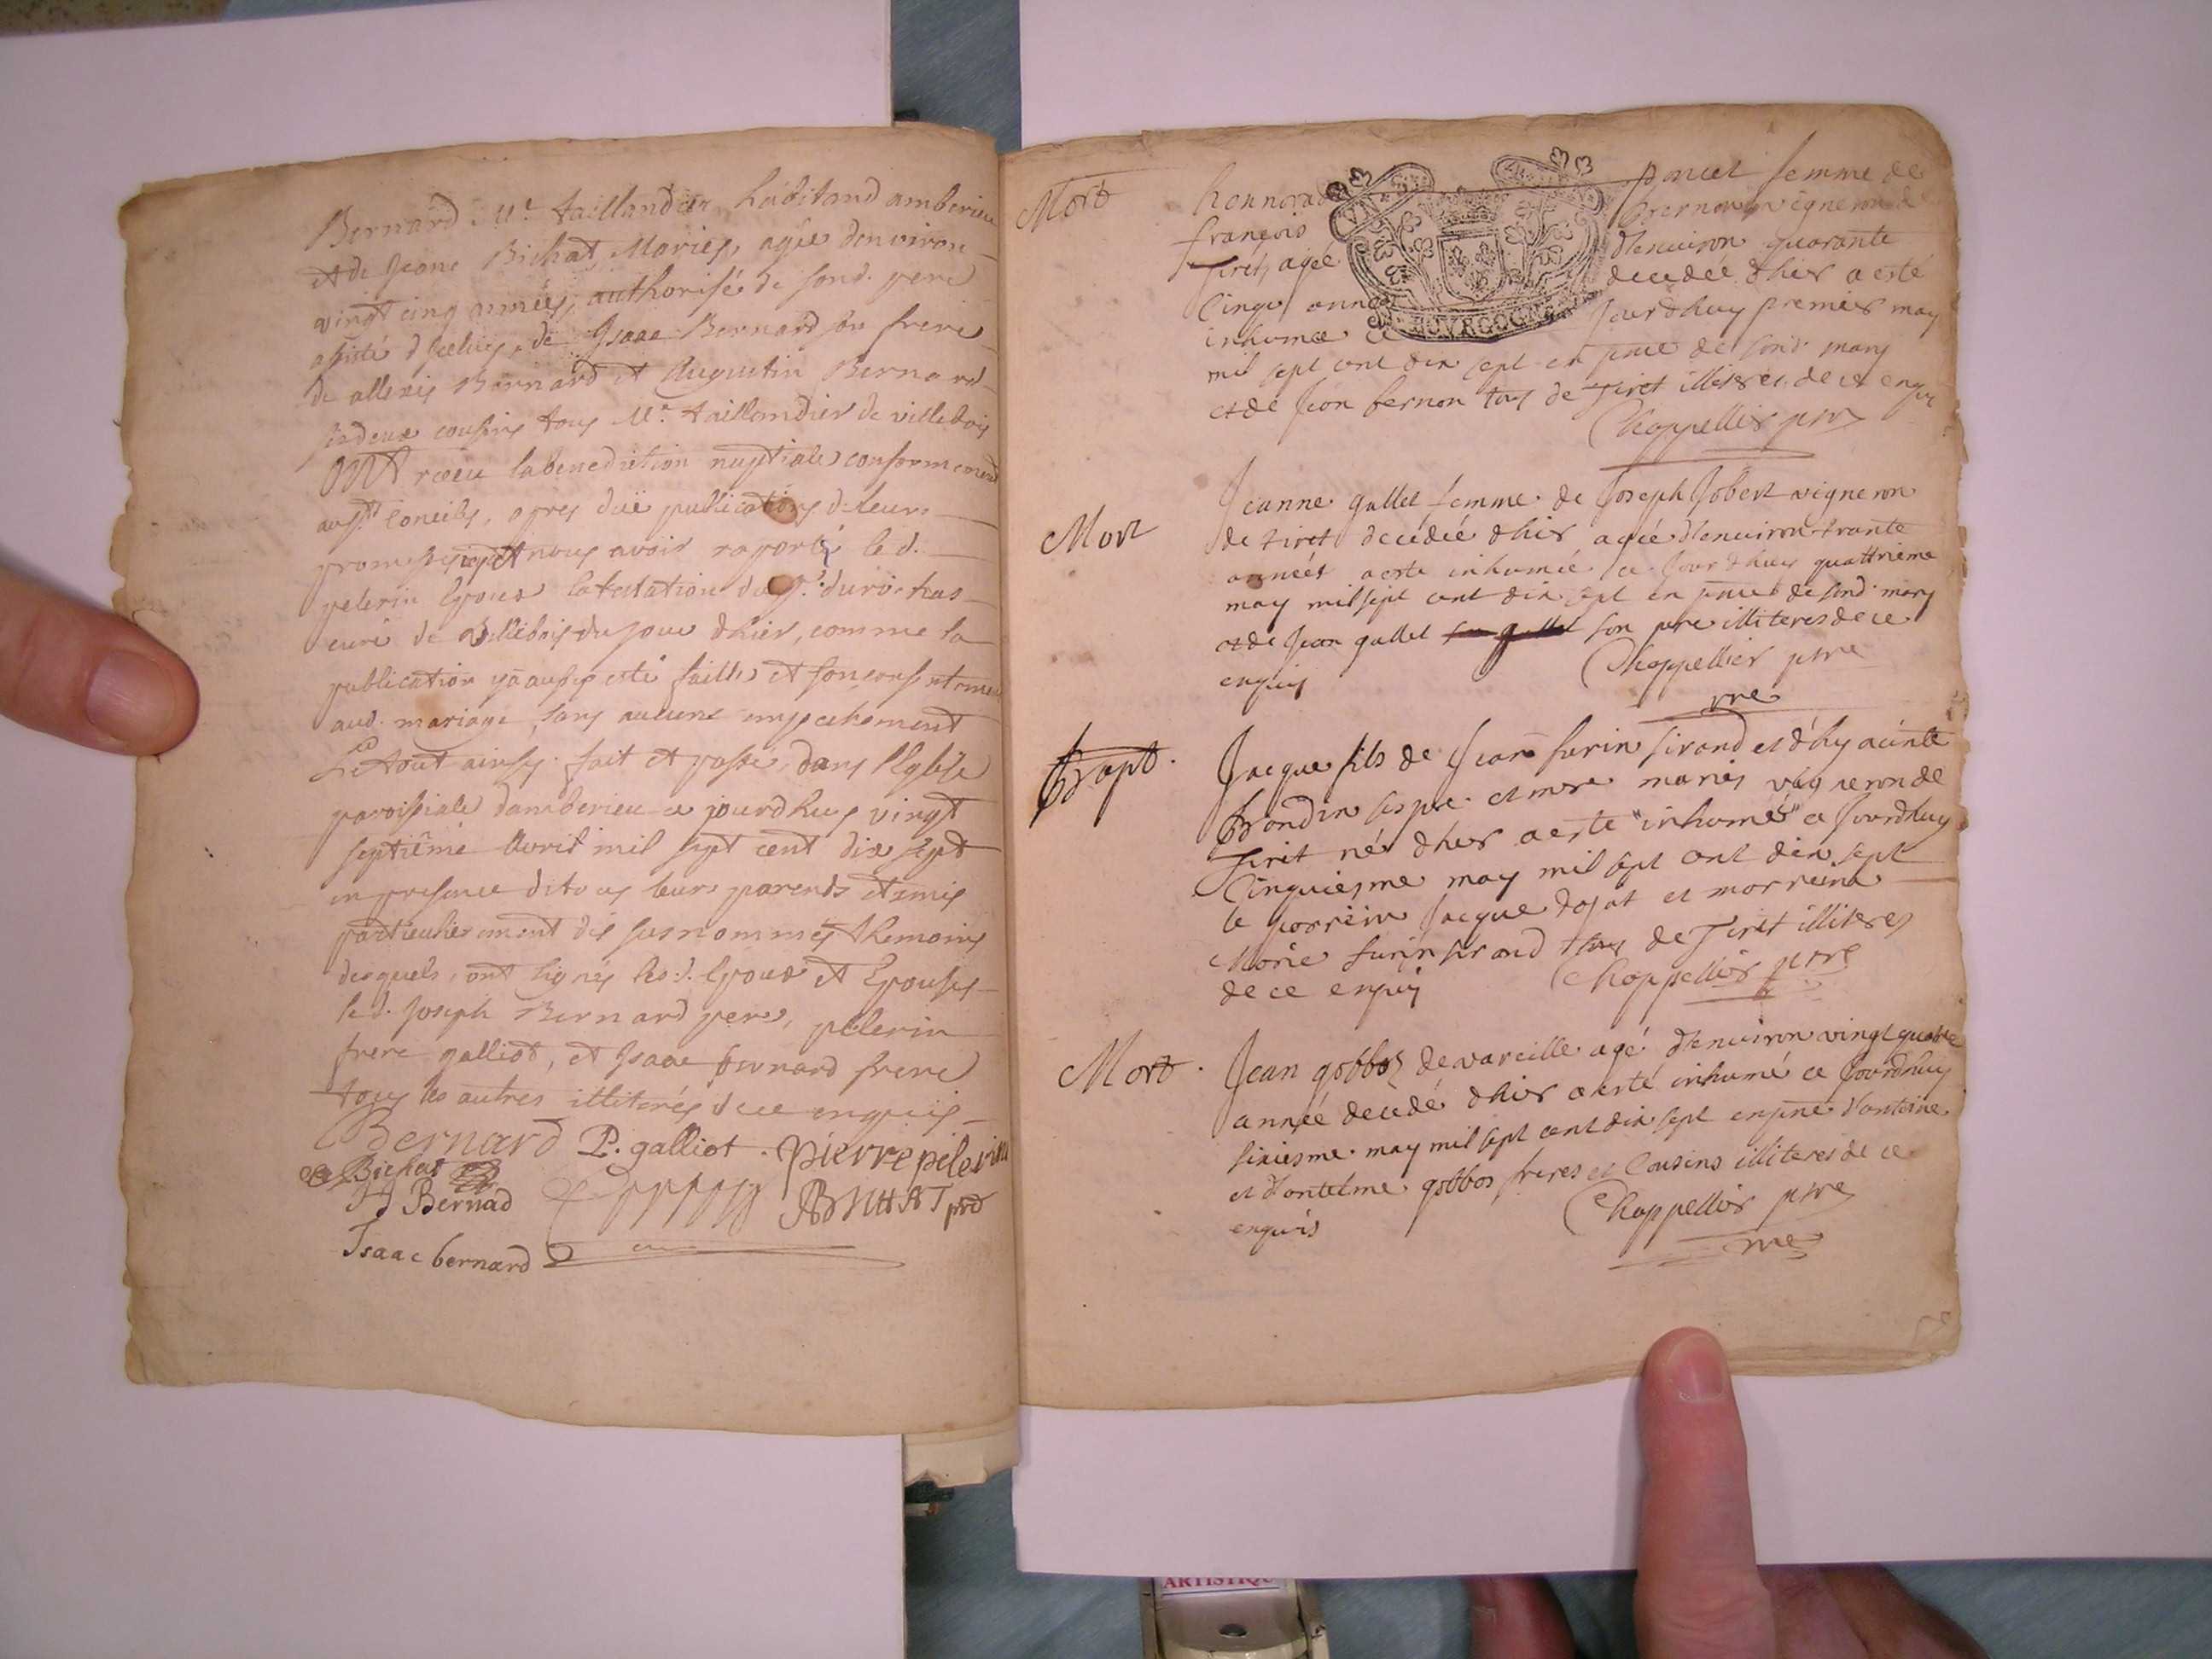 Bernard Mre taillandier habitand amberieu
et de Jeane Bichat Mariés, agée denviron
vingt cinq années, authorisé de sond. pere
assisté d'Jceluy, de Isaac Bernard son frere
de allexis Bernard et Augustin Bernard
ses deux cousins tous Mre. taillandier de villebois
ONt receu la benediction nuptiale conformement
aux sts Conciles, apres düe publications de leurs
promesses et nous avoir raporté le d.
pelerin Epoux latestation du sr. durochas
curé de Villebois du jour dhier, comme la
publication y a aussy esté faitte et son consentement
aud. mariage, sans aucune empechement
Le tout ainsy fait et passé, dans l'Eglise
paroissiale damberieu ce jourdhuy vingt
septiême Avril mil sept cent dix sept
en presence de tous leurs parents et amis
particulierement des susnommés themoins
desquels, ont signés les d. Epoux et Epouses
led. Joseph Bernard pere, pelerin
frere galliod, et Isaac bernard frere
tous les autres illiterés de ce enquis
Bernard P. galliot . pierre pelerin
Bichat
Bernad
BICHAT prd
Isaac bernard
Mort
honnora pancet femme de
françois bernon vigneron de
Tiret, agée d'enuiron quarante
Cinqe année decedée dhier a esté
inhumée ce Jourdhuy premier may
mil sept cent dix sept en pnce de sond mary
et de Jean bernon tous de Tiret illiteres de ce enquis
Chappellier pre
BOVRGOGNE
Mort
Jeanne gullet femme de Joseph Jobert vigneron
de tiret decedée dhier agée d'enuiron trante
années a esté inhumée ce Jourdhuy quattrieme
may mil sept cent dix sept en pnce de sond mary
et de Jean gullet son pere illiteres de ce
enquis
Chappellier ptre
vre
Bapt.
Jacque fils de Jean surin sirand et d'hyacinte
Brondin ses pere et mere mariés vigneron de
Tiret né dhier a esté "inhumé" ce Jourdhuy
Cinquiesme may mil sept cent dix sept
le parrein Jacque dojat et marreine
Marie surin sirand tous de Tiret illiteres
de ce enquis
Chappellier ptre
Mort.
Jean gobbos de vareille agé d'enuiron vingt quatre
année decedé dhier a esté inhumé ce Jourdhuy
sixiesme may mil sept cent dix sept en pnce d'antoine
et d'antelme gobbos freres et Cousins illiteres de ce
enquis
Chappellier ptre
vre
ARTISTIQU